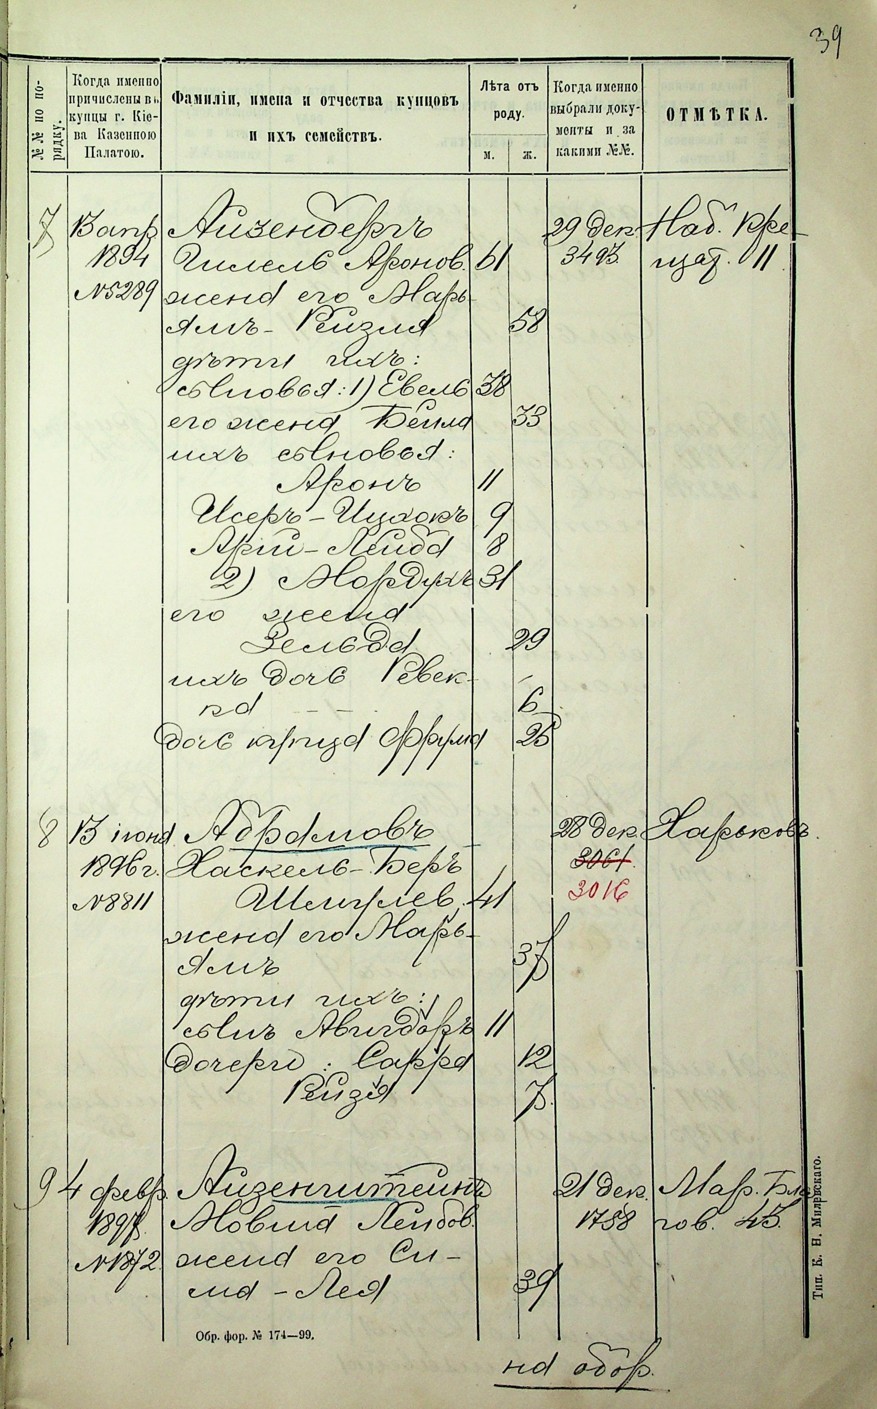 39
№№ по по-
рядку.
Когда именно
причислены въ
купцы г. Кіе-
ва Казенною
Палатою.
Фамиліи, имена и отчества купцовъ
и ихъ семействъ.
Лѣта отъ
роду.
м.
ж.
Когда именно
выбрали доку-
менты и за
какими №№.
ОТМѢТКА.
7 13 апр Айзенбергъ 29 дек Наб. Кре-
1894 Гилель Аронов. 61 3493 щат. 11
№5289 жена его Марь-
ямъ-Рейзля 58
дѣти ихъ:
сыновья: 1) Евель 38
его жена Бейла 33
ихъ сыновья:
Аронъ 11
Исеръ-Ицхокъ 9
Арій-Лейба 8
2) Мордухъ 31
его жена
Зельда 29
ихъ дочь Ревек-
ка 6
дочь купца Фрума 25
8 13 іюня Абрамовъ 28 дек Харьковъ.
1896г. Хаскель-Беръ 3061
№8811 Шмулев. 41 3016
жена его Марь-
ямъ 37
дѣти ихъ:
сынъ Авигдоръ 11
дочери: Сарра 12
Рейзя 7
9 4 февр. Айзенштейнъ 21 дек. Мар. Бла
1897 Мовша Лейбов. 1758 гов. 45.
№1872 жена его Си-
ма-Лея 39
Обр. фор. № 174—99.
на обор.
Тип. Е. Н. Милевскаго.